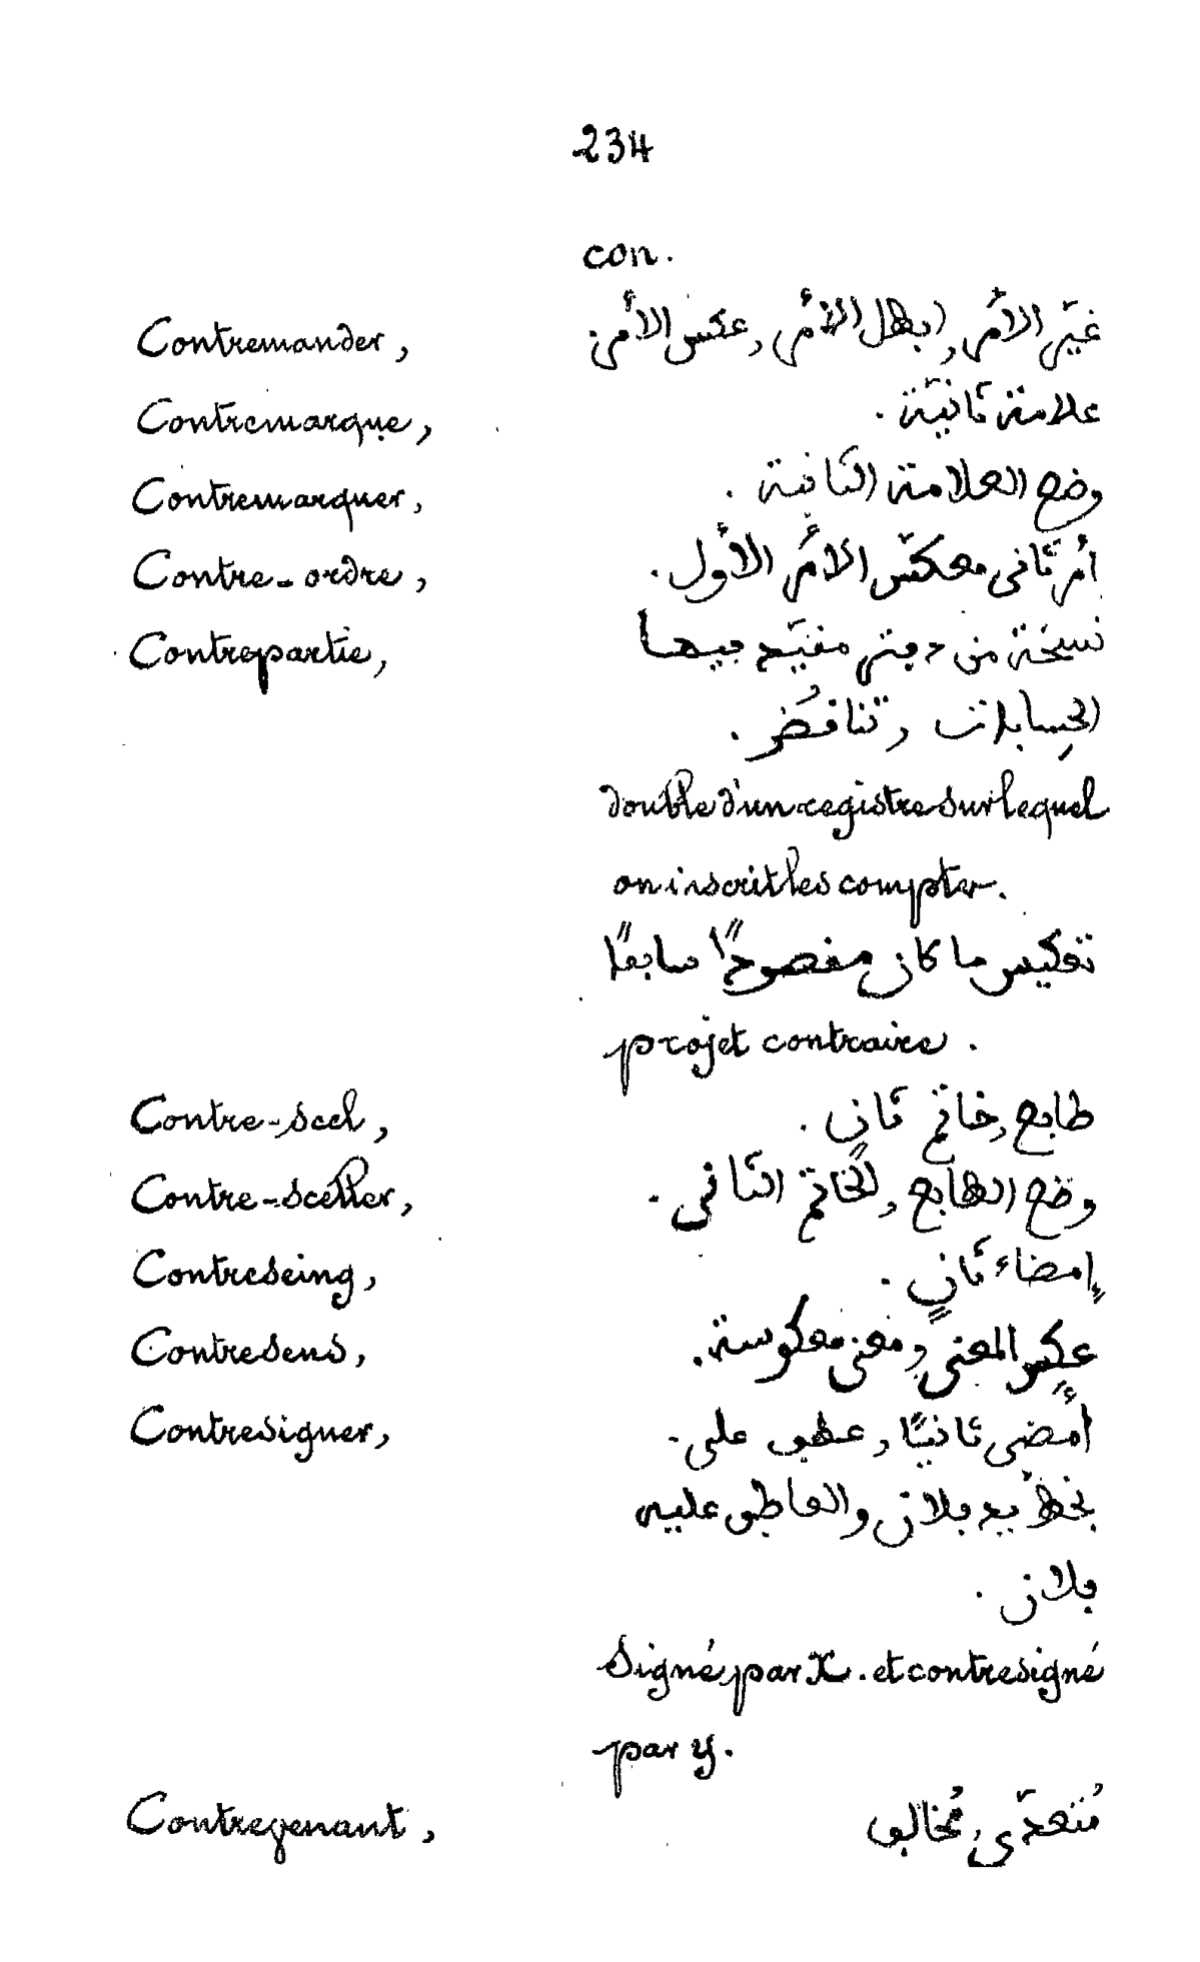 234
con.
Contremander, غيّر الأمر, ابطل الأمر, عكس الأمر
Contremarque, علامة ثانيّة .
Contremarquer, وضع العلامة الثانية .
Contre-ordre, أمر ثاني معكّس الأمر الأول .
Contrepartie, نسخة من دفتر مقيّد فيها
الحِسابات , تناقُض .
double d'un registre sur lequel
on inscrit les comptes.
تعكيس ما كان مقصودًا سابقًا
projet contraire .
Contre-scel, طابع, خاتم ثانٍ .
Contre-sceller, وضع الطابع, الخاتم الثاني .
Contreseing, إمضاء ثانٍ .
Contresens, عكس المعنى, معنى معكوسة .
Contresigner, أمضى ثانيًا, عطف على .
بخطّ يد فلان والعاطف عليه
فلان .
Signé par X. et contresigné
par y.
Contrevenant, مُتعدّي, مُخالف